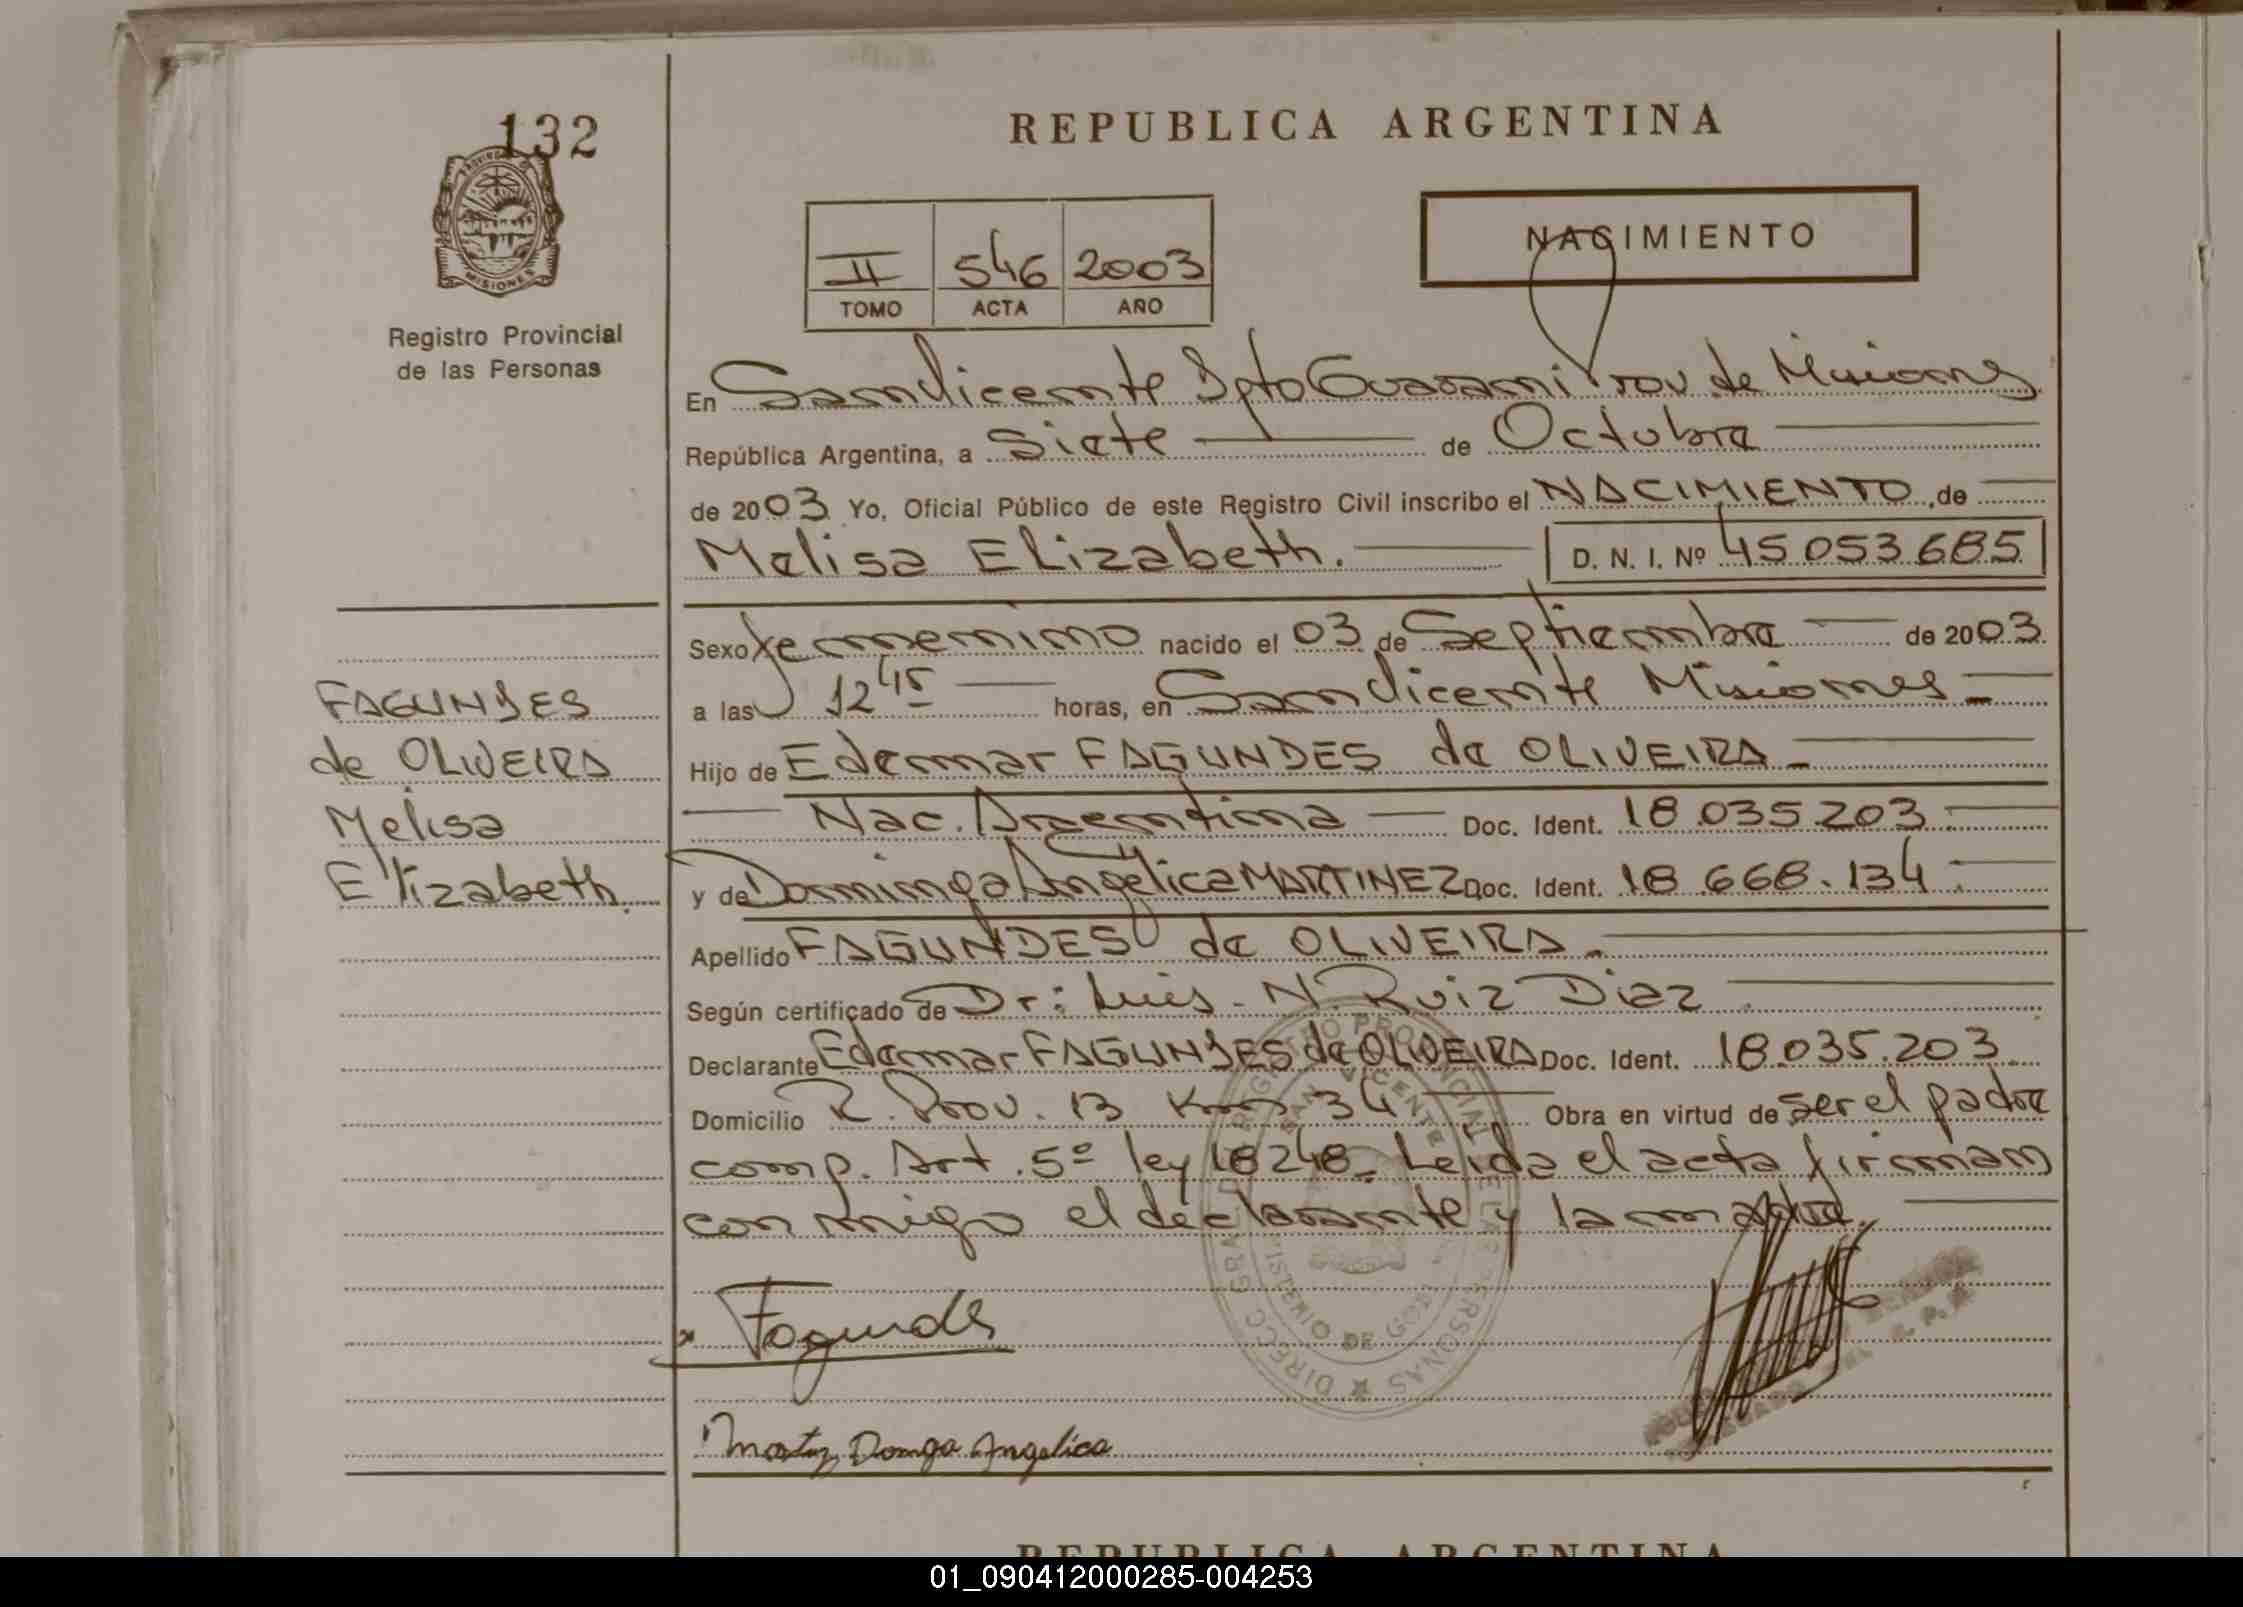 132
REPUBLICA ARGENTINA
PROVINCIA DE
MISIONES
Registro Provincial
de las Personas
II 546 2003
TOMO ACTA AÑO
NACIMIENTO
En San Vicente Dpto Guarani Prov. de Misiones
República Argentina, a Siete de Octubre
de 2003 Yo, Oficial Público de este Registro Civil inscribo el NACIMIENTO, de
Melisa Elizabeth. D. N. I. Nº 45.053.685
Sexo femenino nacido el 03 de Septiembre de 2003.
a las 12 45 horas, en San Vicente Misiones
Hijo de Edemar FAGUNDES de OLIVEIRA
Nac. Argentina Doc. Ident. 18.035.203
y de Dominga Angélica MARTINEZ Doc. Ident. 18.668.134
Apellido FAGUNDES de OLIVEIRA.
Según certificado de Dr: Luis. N. Ruiz Diaz
Declarante Edemar FAGUNDES de OLIVEIRA Doc. Ident. 18.035.203
Domicilio R. Prov. 13 Km 34 Obra en virtud de ser el padre
comp. Art. 5º ley 18248. Leida el acta firman
con migo el declarante y la madre.
FAGUNDES
de OLIVEIRA
Melisa
Elizabeth.
x Fagundes
Domga Angelica
REPUBLICA ARGENTINA
01_090412000285-004253